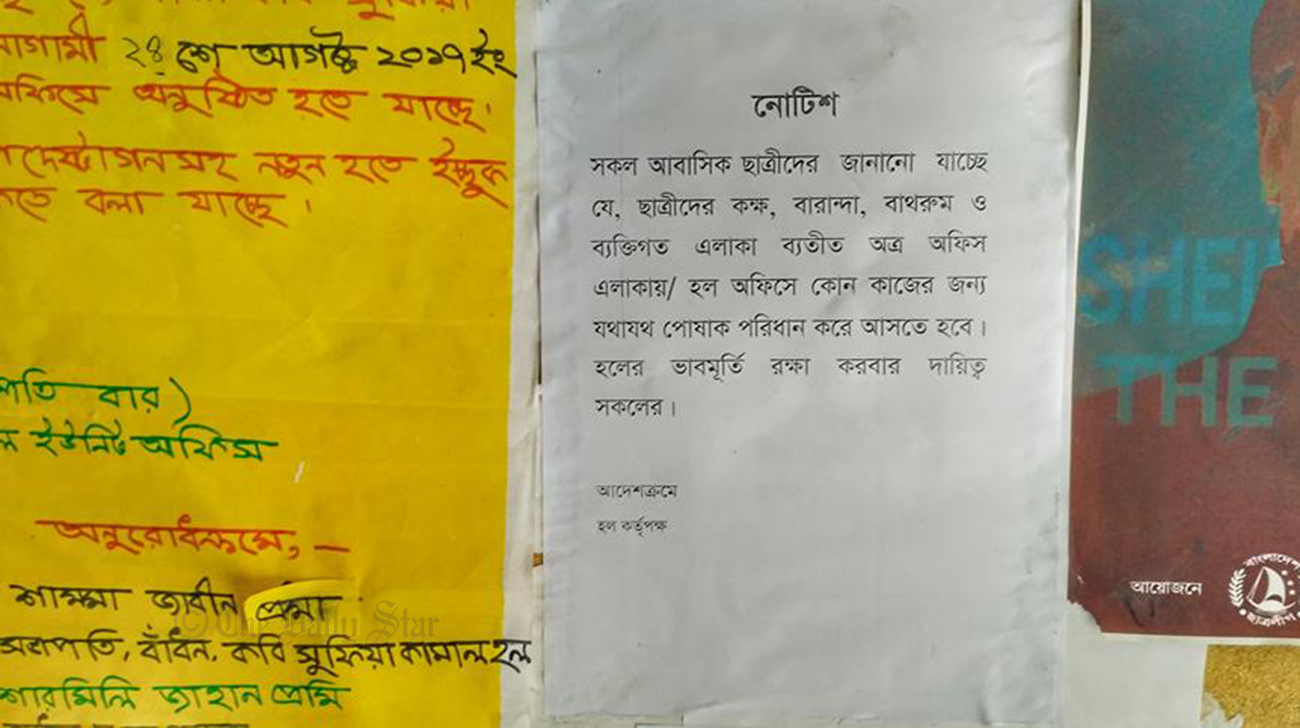 ২৪ শে আগষ্ট ২০১৭ ইং
অনুষ্ঠিত হতে যাচ্ছে।
নতুন হতে ইচ্ছুক
বলা যাচ্ছে।
বার)
ইউনিট অফিস
অনুরোধক্রমে, —
শাম্মা জাবীন প্রেমা
বাঁধন, কবি সুফিয়া কামাল হল
শারমিলি জাহান প্রেমি
© The Daily Star
নোটিশ
সকল আবাসিক ছাত্রীদের জানানো যাচ্ছে
যে, ছাত্রীদের কক্ষ, বারান্দা, বাথরুম ও
ব্যক্তিগত এলাকা ব্যতীত অত্র অফিস
এলাকায়/ হল অফিসে কোন কাজের জন্য
যথাযথ পোষাক পরিধান করে আসতে হবে।
হলের ভাবমূর্তি রক্ষা করবার দায়িত্ব
সকলের।
আদেশক্রমে
হল কর্তৃপক্ষ
SHEI
THE
আয়োজনে
বাংলাদেশ
ছাত্রলীগ